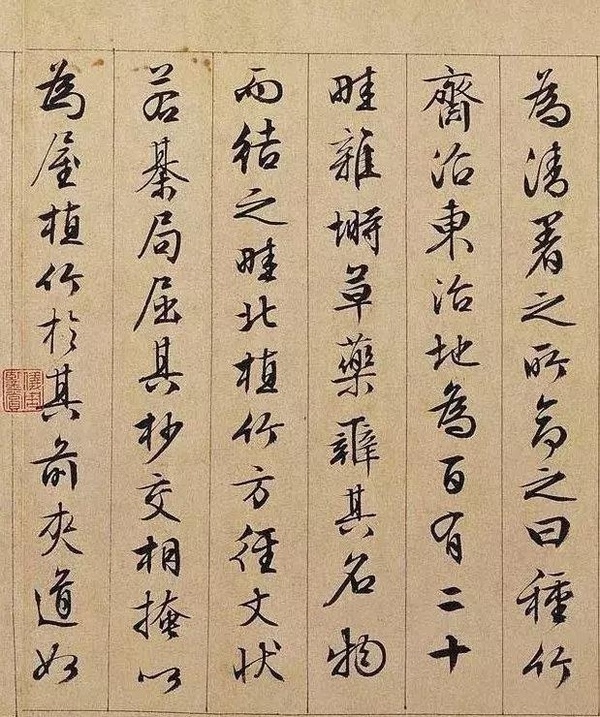 為清署之所命之曰種竹
齋沼東治地為百有二十
畦雜塒草藥辨其名物
而結之畦北植竹方徑丈狀
若棊局屈其杪交相掩以
為屋植竹於其前夾道如
儀周鑒賞